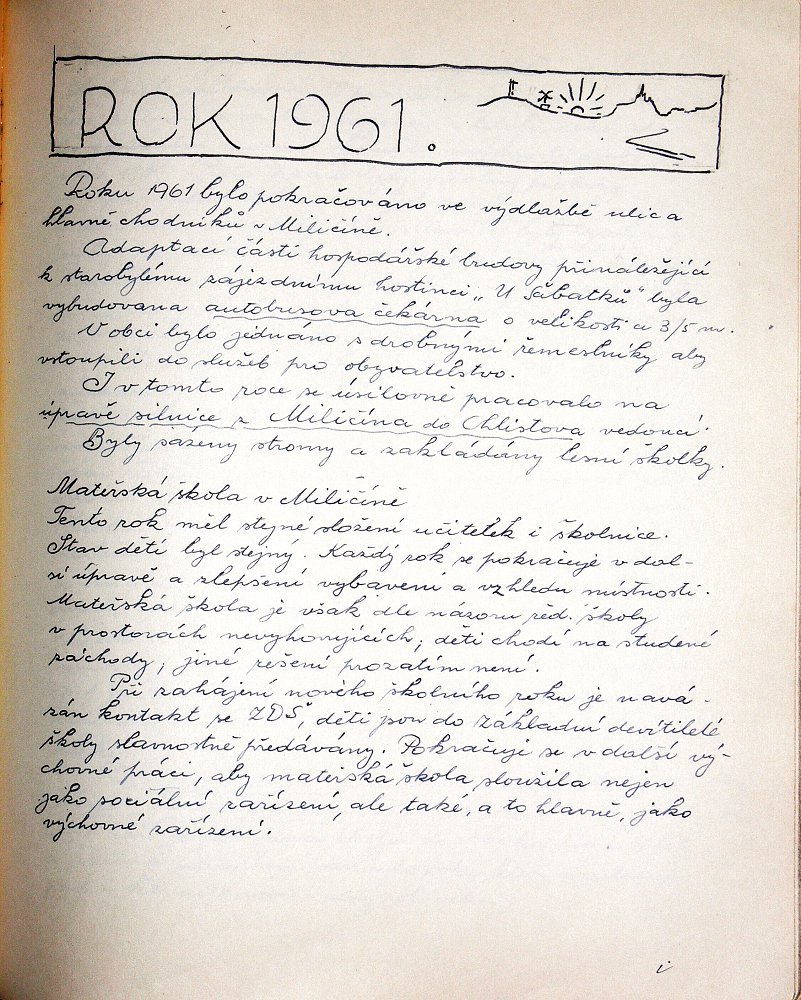 ROK 1961.
Roku 1961 bylo pokračováno ve výdlažbě ulic a
hlavně chodníků v Miličíně.
Adaptací části hospodářské budovy přináležející
k starobylému zájezdnímu hostinci „U Sabatků" byla
vybudována autobusova čekárna o velikosti a 3/5 m.
V obci bylo jednáno s drobnými řemeslníky aby
vstoupili do služeb pro obyvatelstvo.
I v tomto roce se úsilovně pracovalo na
úpravě silnice z Miličína do Chlistova vedoucí.
Byly sázeny stromy a zakládány lesní školky.
Mateřská škola v Miličíně
Tento rok měl stejné složení učitelek i školnice.
Stav dětí byl stejný. Každý rok se pokračuje v dal-
ší úpravě a zlepšení vybavení a vzhledu místností.
Mateřská škola je však dle názoru řed. školy
v prostorách nevyhovujících, děti chodí na studené
záchody, jiné řešení prozatím není.
Při zahájení nového školního roku je navá-
zán kontakt se ZDŠ, děti jsou do základní devítileté
školy slavnostně předávány. Pokračuje se v další vý-
chovné práci, aby mateřská škola sloužila nejen
jako sociální zařízení, ale také, a to hlavně, jako
výchovné zařízení.